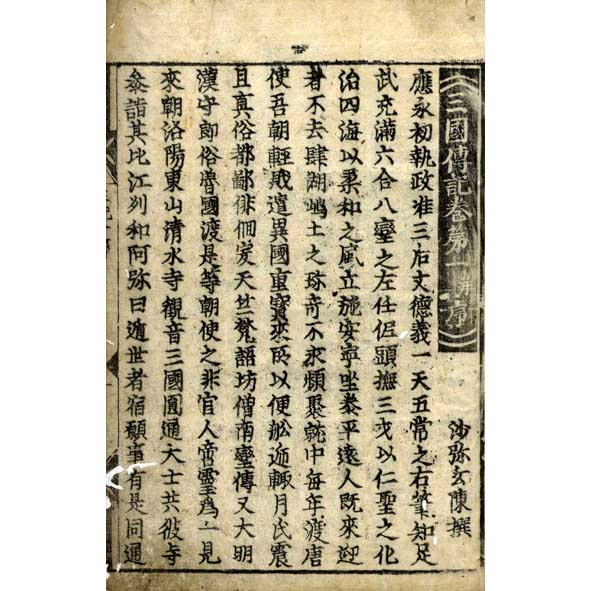 三國傳記卷第一并序
沙弥玄棟撰
應永初執政准三后文德義一天五常之右筆知足
武充滿六合八蠻之左仕伹頭撫三戈以仁聖之化
治四海以柔和之風立施安寧坐泰平遠人既來迎
者不去肆湖嶋土之珎奇不求煩聚就中每年渡唐
使吾朝輕賎遣異國重寶來所以便舩迊輙月氏震
且真俗都鄙徘徊爰天竺梵語坊僧南蠻傳又大明
漢守郎俗魯國渡是等朝使之非官人帝霊為一見
來朝洛陽東山清水寺觀音三國圓通大士共彼寺
叅詣其比江列和阿弥曰遁世者宿願事有是同通